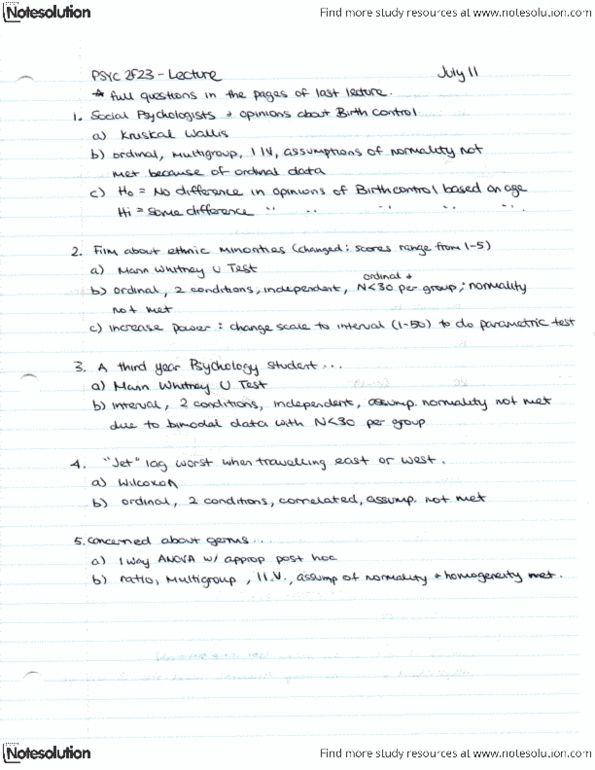 Notesolution
Find more study resources at www.notesolution.com
PSYC 2F23 - Lecture July 11
* full questions in the pages of last lecture.
1. Social Psychologists + opinions about Birth Control
a) Kruskal Wallis
b) ordinal, multigroup, 1 IV, assumptions of normality not
met because of ordinal data
c) Ho = No difference in opinions of Birthcontrol based on age
Hi = Some difference " " " " "
2. Film about ethnic minorities (changed: scores range from 1-5)
a) Mann Whitney U Test
ordinal +
b) ordinal, 2 conditions, independent, N<30 per group; normality
not met
c) increase power: change scale to interval (1-50) to do parametric test
3. A third year Psychology student...
a) Mann Whitney U Test
b) interval, 2 conditions, independent, assump. normality not met
due to bimodal data with N<30 per group
4. "Jet" lag worst when travelling east or west.
a) Wilcoxon
b) ordinal, 2 conditions, correlated, assump. not met
5. Concerned about germs...
a) 1 way ANOVA w/ approp post hoc
b) ratio, multigroup, 1 I.V., assump of normality + homogeneity met.
Notesolution
Find more study resources at www.notesolution.com